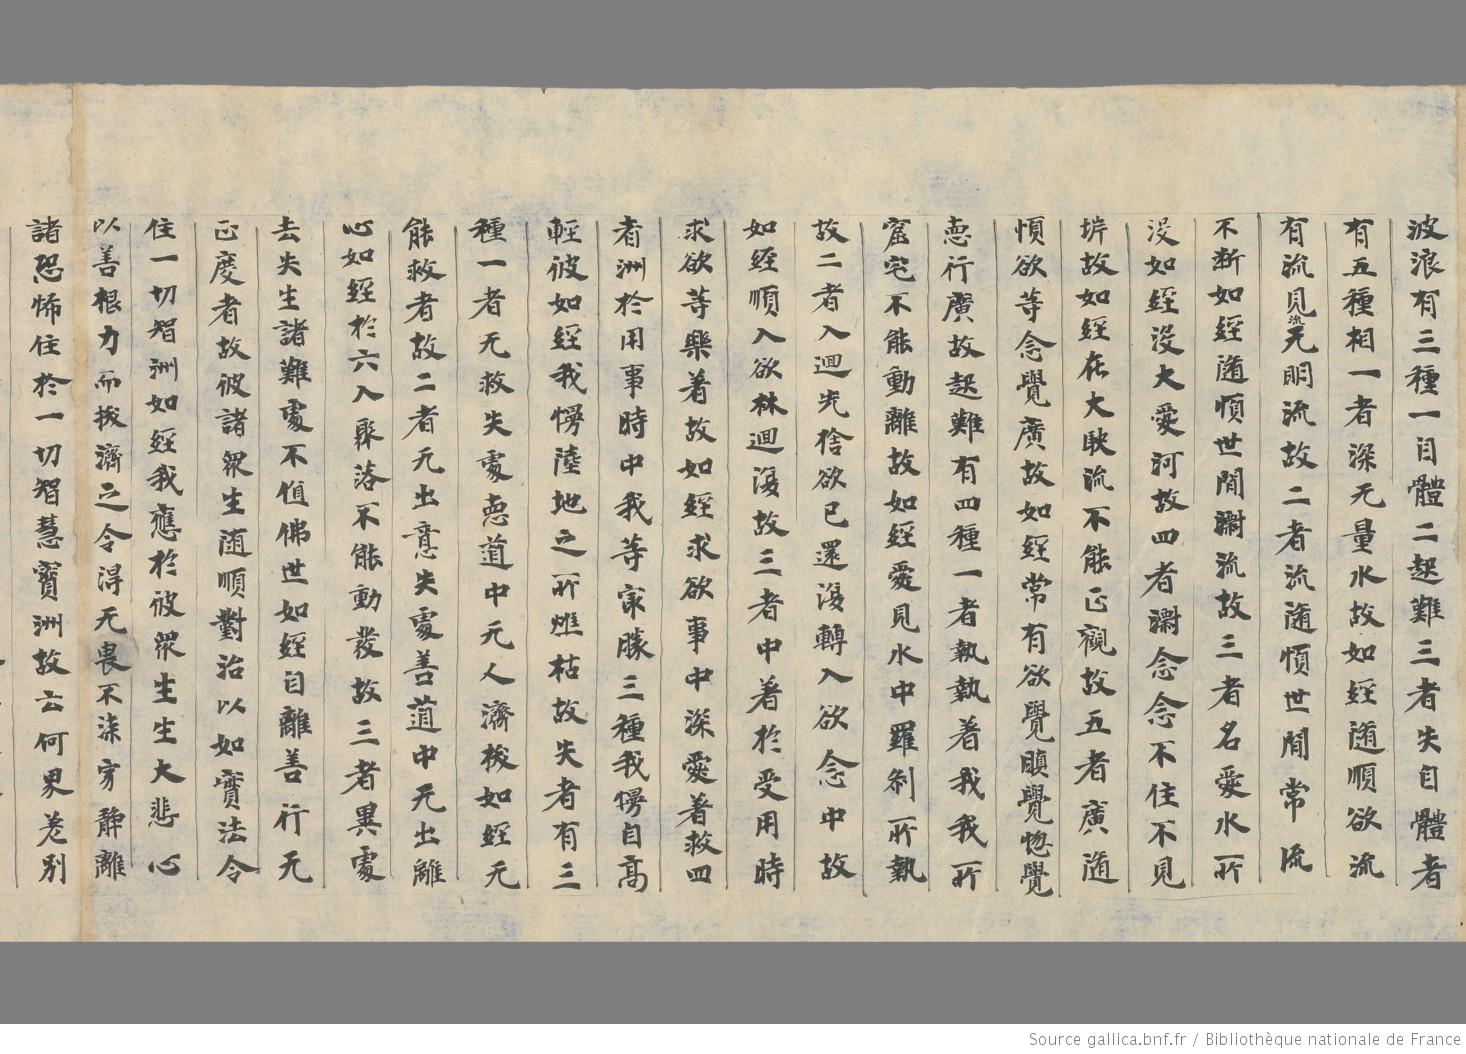 波浪有三種一自體二起難三者失自體者
有五種相一者深无量水故如經隨順欲流
有流見流无明流故二者流隨順世間常流
不斷如經隨順世間㵎流故三者名愛水所
沒如經沒大愛河故四者㵎念念不住不見
㘽故如經在大駃流不能正觀故五者廣隨
順欲等念覺廣故如經常有欲覺瞋覺惚覺
惡行廣故起難有四種一者執執著我我所
窟宅不能動離故如經愛見水中羅剎所執
故二者入迴 捨欲已還復轉入欲念中故
如經順入欲林迴復故三者中著於受用時
求欲等樂著故如經求欲事中深愛著故四
者洲於用事時中我等家勝三種我慢自高
輕彼如經我慢陸地之所燋枯故失者有三
種一者无救失處惡道中无人濟拔如經无
能救者故二者无出意失處善道中无出離
心如經於六入聚落不能動發故三者異處
去失生諸難處不值佛世如經自離善行无
正度者故彼諸眾生隨順對治以如實法令
住一切智洲如經我應於彼眾生生大悲心
以善根力而拔濟之令得无畏不染寂靜離
諸恐怖住於一切智慧寶洲故云何界差別
Source gallica.bnf.fr / Bibliothèque nationale de France